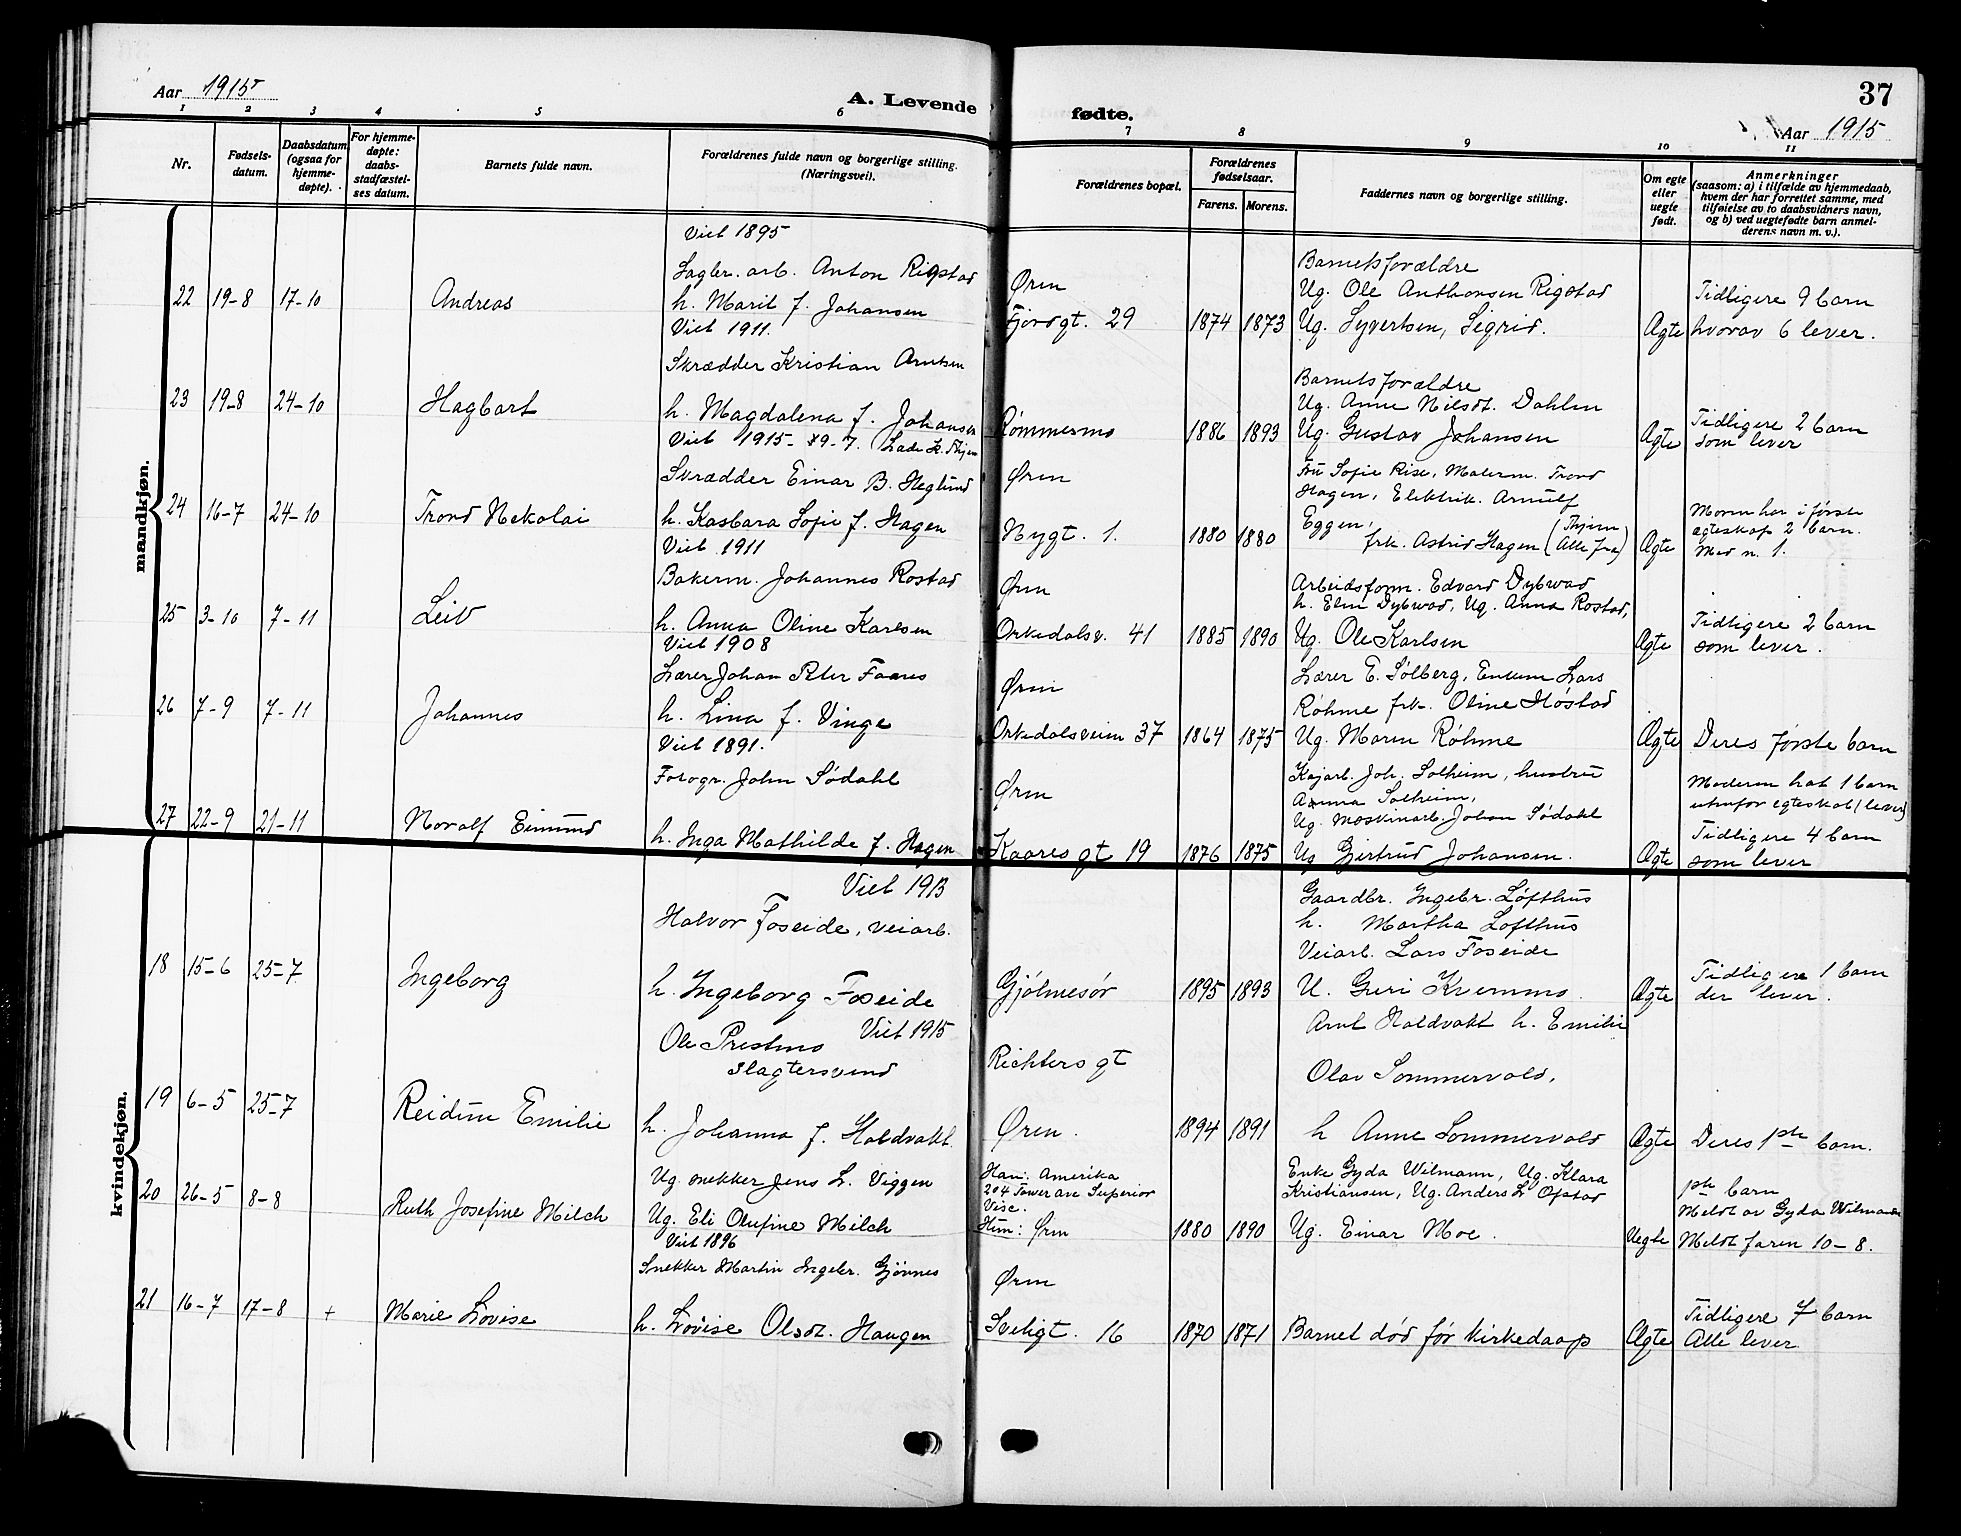 37
Aar 1915
A. Levende fødte.
Aar 1915
1 2 3 4 5 6 7 8 9 10 11
Nr.
Fødsels-
datum.
Daabsdatum
(ogsaa for
hjemme-
døpte).
For hjemme-
døpte:
daabs-
stadfæstel-
ses datum.
Barnets fulde navn.
Forældrenes fulde navn og borgerlige stilling.
(Næringsvei).
Forældrenes bopæl.
Forældrenes
fødselsaar.
Farens. Morens.
Faddernes navn og borgerlige stilling.
Om egte
eller
uegte
født.
Anmerkninger
(saasom: a) i tilfælde av hjemmedaab,
hvem der har forrettet samme, med
tilføielse av to daabsvidners navn,
og b) ved uegtefødte barn anmel-
derens navn m. v.).
mandkjøn.
22 19-8 17-10
Andreas
Viet 1895
Sagbr. arb. Anton Rigstad
h. Marit f. Johansen
Øren
Fjordgt. 29
1874 1873
Barnets forældre
Ug. Ole Anthonsen Rigstad
Ug. Syvertsen, Sigrid.
Ægte
Tidligere 9 barn
hvorav 6 lever.
23 19-8 24-10
Hagbart
Viet 1911.
Skrædder Kristian Arntsen
h. Magdalena f. Johansen
Rømmesmo
1886 1893
Barnets forældre
Ug. Anne Nilsdt. Dahlen
Ug. Gustav Johansen
Ægte
Tidligere 2 barn
som lever
24 16-7 24-10
Trond Nekolai
Viet 1915- 9-7. Lade k. Thjem
Skrædder Einar B. Heglund
h. Kasbara Sofie f. Hagen
Øren
Nygt. 1.
1880 1880
Fru Sofie Rise, Malerm. Trond
Hagen, Elektrik. Arnulf
Eggen,
frk. Astrid Hagen (Alle fra Thjem)
Ægte
Moren har i første
egteskap 2 barn.
Med n. 1.
25 3-10 7-11
Leiv
Viet 1911
Bakerm. Johannes Rostad
h. Anna Oline Karlsen
Øren
Orkedalsv. 41
1885 1890
Arbeidsform. Edvard Dybwad
h. Elen Dybwad, Ug. Anna Rostad,
Ug. Ole Karlsen
Ægte
Tidligere 2 barn
som lever.
26 7-9 7-11
Johannes
Viet 1908
Lærer Johan Peter Faares
h. Lina f. Vinge
Øren
Orkedalsveien 37
1864 1875
Lærer E. Solberg, Enkem Lars
Røhme frk. Oline Høstad
Ug. Maren Røhme
Ægte
Deres første barn
27 22-9 21-11
Noralf Eimund
Viet 1891.
Fotogr. John Sødahl
h. Inga Mathilde f. Hagen
Øren
Kaares gt 19
1876 1875
Kajarb. Joh. Solheim, hustru
Anna Solheim,
Ug. maskinarb. Johan Sødahl
Ug Gjertrud Johansen.
Ægte
Moderen hat 1 barn
utenfor egteskab (lever)
Tidligere 4 barn
som lever
kvindekjøn.
18 15-6 25-7
Ingeborg
Viet 1913
Halvor Foseide, veiarb.
h. Ingeborg Foseide
Gjølmesør
1895 1893
Gaardbr. Ingebr. Løfthus
h. Martha Løfthus
Veiarb. Lars Foseide
U. Guri Kvernmo.
Ægte
Tidligere 1 barn
der lever.
19 6-5 25-7
Reidun Emilie
Viet 1915
Ole Prestmo
slagtersvend
h. Johanna f. Holdvakt.
Richters gt
Øren.
1894 1891
Arnt Holdvakt h. Emilie
Olav Sommervold,
h Anne Sommervold
Ægte
Deres 1ste barn.
20 26-5 8-8
Ruth Josefine Milch
Ug. snekker Jens L. Viggen
Ug. Eli Olufine Milch
Han: Amerika
204 Tower ave Superior
Visc.
Hun: Øren
1880 1890
Enke Gyda Wilmann, Ug. Klara
Kristiansen, Ug. Anders L Opstad
Ug. Einar Moe.
Uegte
1ste barn
Meldt av Gyda Wilmann
Meldt faren 10-8.
21 16-7 17-8 +
Marie Lovise
Viet 1896
Snekker Martin Ingebr. Gjønnes
h. Lovise Olsdt. Haugen
Øren
Sveligt. 16
1870 1871
Barnet død før kirkedaap
Ægte
Tidligere 7 barn
Alle lever.